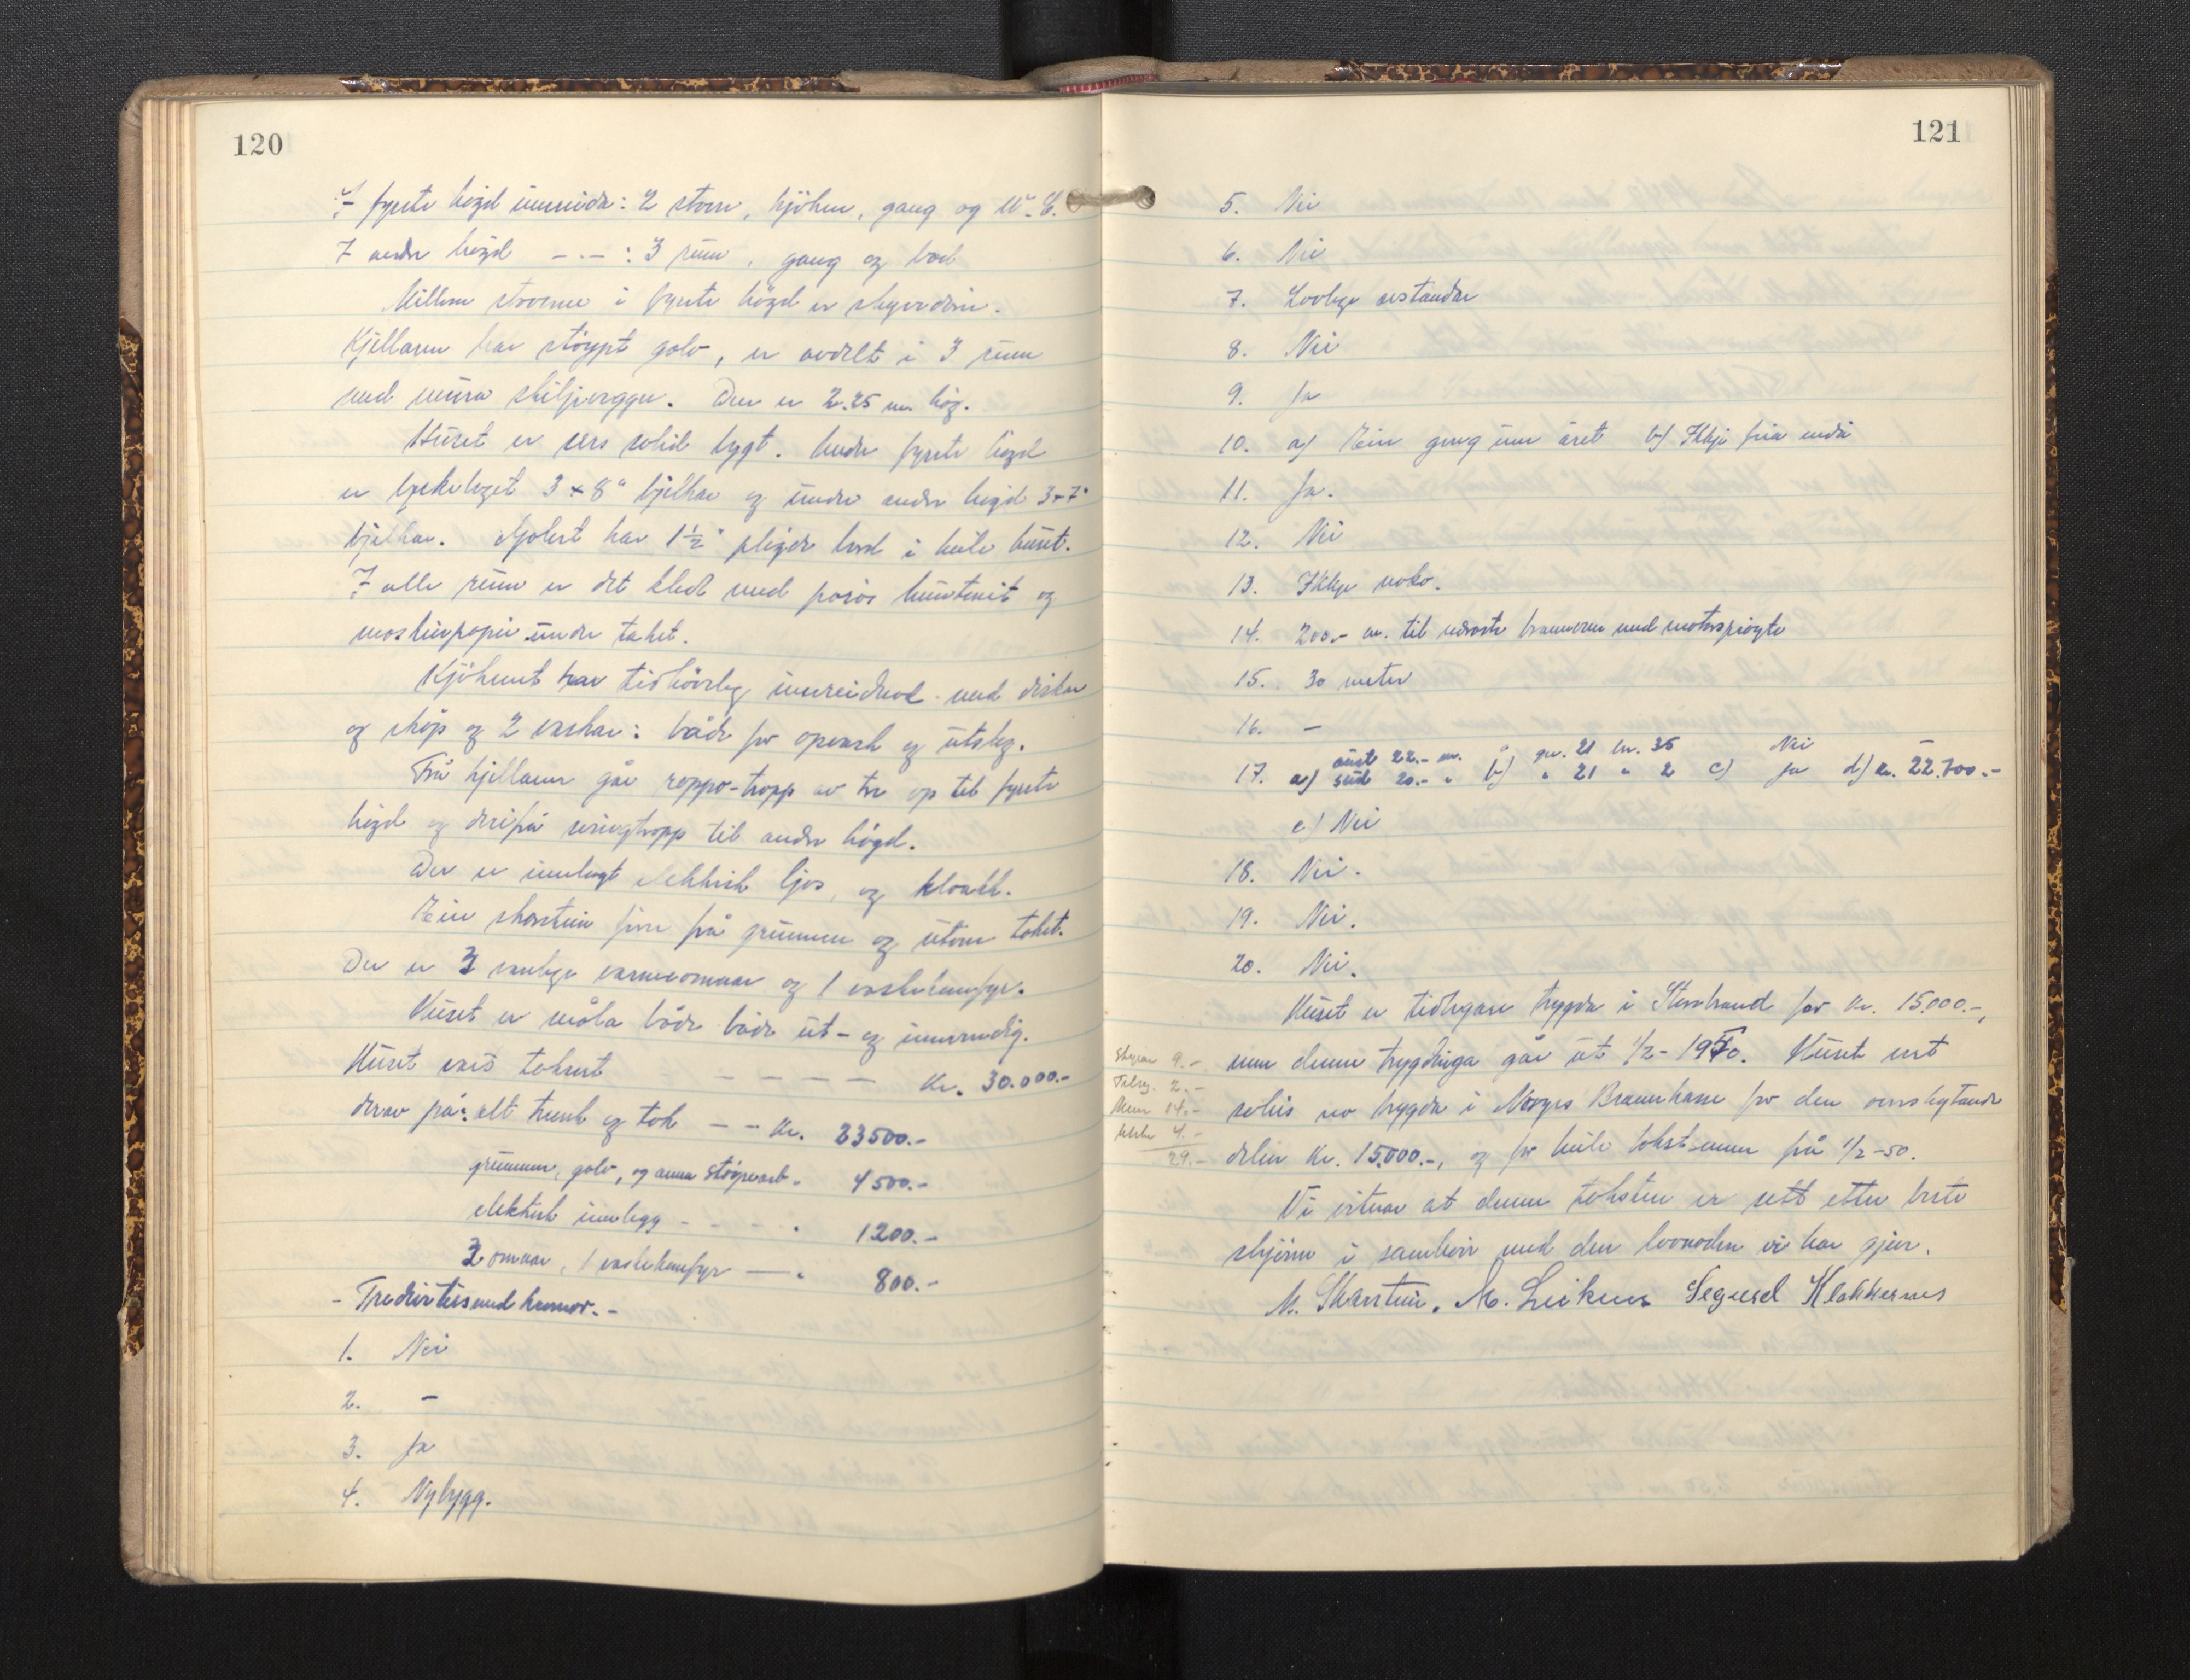 120
I fyrste högd innreidde: 2 stover, kjöken, gang og W.C.
I andre högd -.- : 3 rum, gang og bad
Millom stovene i fyrste högd er skyvedör.
Kjellaren har stöypt golv, er avdelt i 3 rum
med mura skiljevegger. Den er 2.25 m. hög.
Huset er sers solid bygt. Under fyrste högd
er bjelkelaget 3 x 8" bjelkar og under andre högd 3x7"
bjelkar. Golvet har 1½" pløgde bord i heile huset.
I alle rum er det kledt med porös huntonit og
maskinpapir under taket.
Kjökenet har tidhöveleg innreidnad med diskar
og skåp og 2 vaskar: både for opvask og utslag.
Frå kjellaren går roppo-tropp av tre op til fyrste
högd og derifrå svingtropp til andre högd.
Der er innlagt elektrisk ljos, og kloakk.
Ein skorstein fire frå grunnen og utom taket.
Der er 3 vanlege varmeomnar og 1 vaskekumfyr.
Huset er måla både både ut- og innvendig.
Huset vert taksert - - - - - Kr. 30.000.-
derav på: alt treverk og tak - - Kr. 23500.-
grunnen, golv, og anna stöypearb. " 4500.-
elektrisk innlegg - - - " 1200.-
3 omnar, 1 vaskekumfyr — " 800.-
1. Nei
2. -
3. Ja
4. Nybygg.
121
5. Nei
6. Nei
7. Lovlege avstandar
8. Nei
9. Ja
10. a) Ein gong um året b) Ikkje fria enda
11. Ja.
12. Nei
13. Ikkje noko.
14. 200.- m. til næraste brannvern med motorspröyte
15. 30 meter
16. -
aust 22.- m. gnr. 21 bnr. 35 Nei -
17. a) sud 20.- " b) " 21 " 2 c) Ja d) Kr. 22.700.-
e) Nei
18. Nei.
19. Nei.
20. Nei.
Huset er tidlegare trygda i Storebrand for Kr. 15.000.-,
men denne trygdinga går ut 1/2-1950. Huset vert
soleis no trygda i Norges Brannkasse for den overskytande
delen Kr. 15.000.-, og for heile takst-sumen frå 1/2-50.
9.-
2.-
14.-
4.-
29.-
Vi vitnar at denne taksten er sett etter beste
skjönn i samhöve med den lovnaden vi har gjeve.
M. Skarstein. M. Leiknes Sigurd Klakkernes